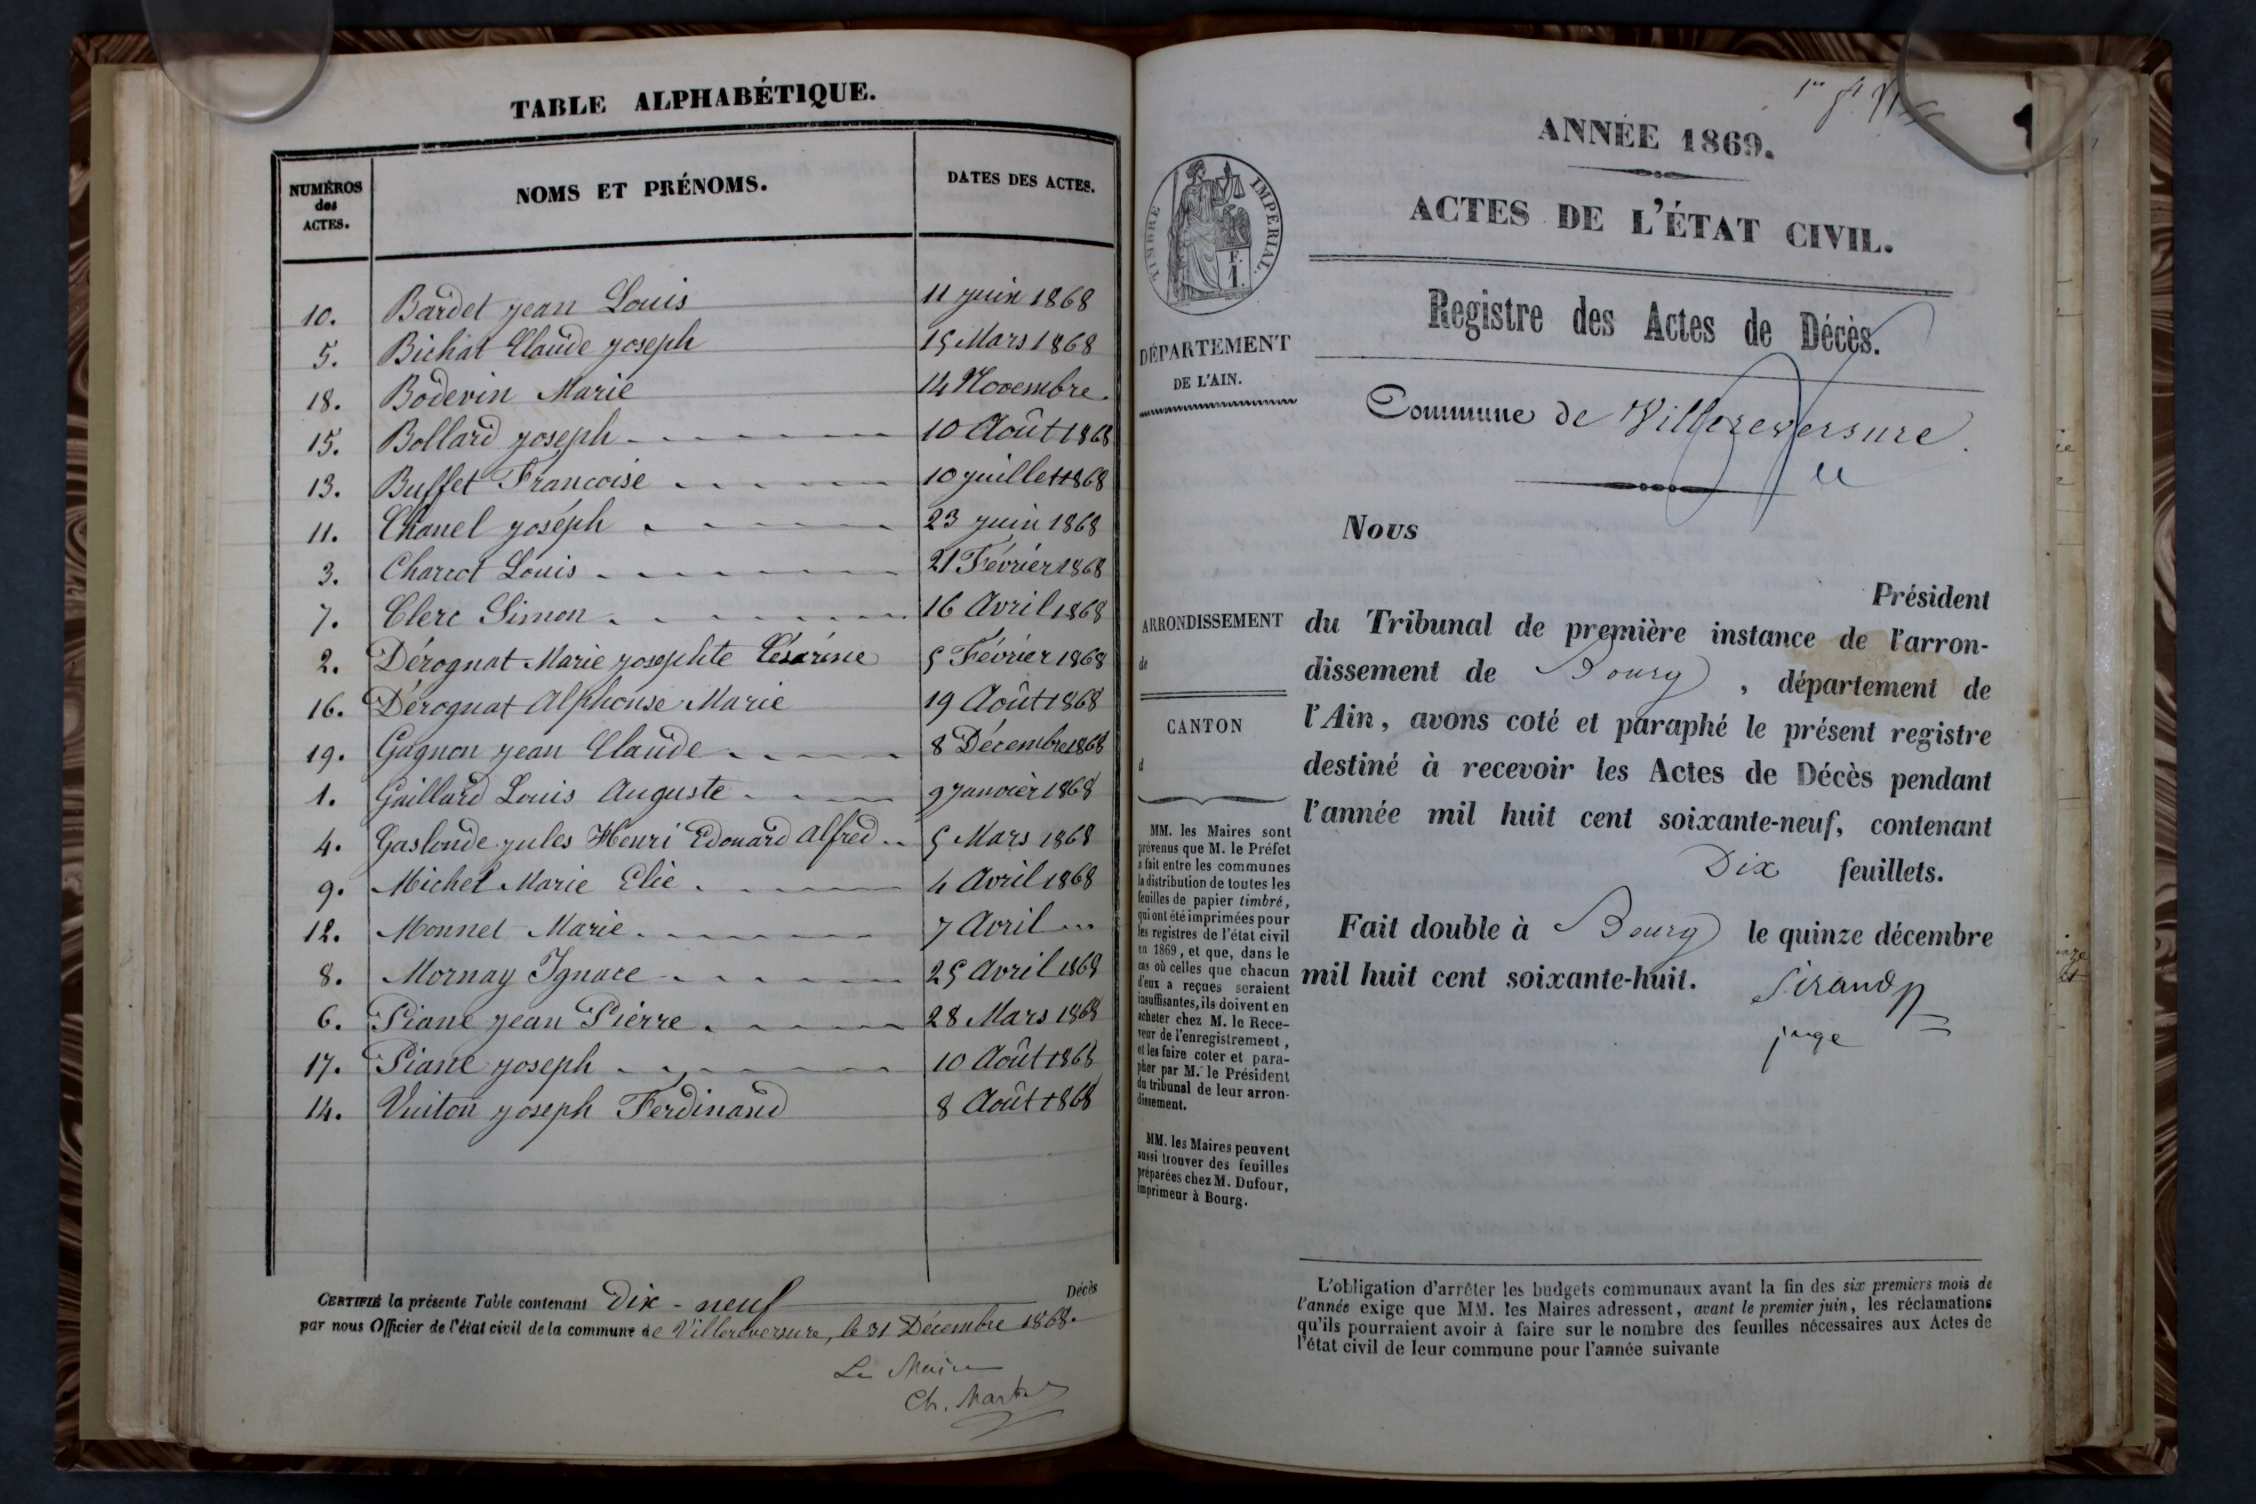 TABLE ALPHABÉTIQUE.
NUMÉROS
des
ACTES.
NOMS ET PRÉNOMS.
DATES DES ACTES.
10. Bardet jean Louis 11 juin 1868
5. Bichat Claude joseph 15 Mars 1868
18. Bodevin Marie 14 Novembre.
15. Bollard joseph 10 Août 1868
13. Buffet Francoise 10 juillet 1868
11. Chanel joséph 23 juin 1868
3. Charcot Louis 21 Février 1868
7. Clerc Simon 16 Avril 1868
2. Dérognat Marie josephte Césarine 5 Février 1868
16. Dérognat Alphonse Marie 19 Août 1868
19. Gagnon jean Claude 8 Décembre 1868
1. Gaillard Louis Auguste 9 Janvier 1868
4. Gaslonde jules Henri Edouard Alfred 5 Mars 1868
9. Michel Marie Elie 4 Avril 1868
12. Monnet Marie 7 Avril
8. Mornay Ignace 25 Avril 1868
6. Piane jean Pierre 28 Mars 1868
17. Piane joseph 10 Août 1868
14. Vuiton joseph Ferdinand 8 Août 1868
CERTIFIÉ la présente Table contenant Dix-neuf Décès
par nous Officier de l'état civil de la commune de Villereversure, le 31 Décembre 1868.
Le Maire
Ch.
ANNÉE 1869.
ACTES DE L'ÉTAT CIVIL.
TIMBRE IMPERIAL.
F.
1.
Registre des Actes de Décès.
DÉPARTEMENT
DE L'AIN.
Commune de Villereversure.
Nous
Président
ARRONDISSEMENT
de
CANTON
d
du Tribunal de première instance de l'arron-
dissement de Bourg, département de
l'Ain, avons coté et paraphé le présent registre
destiné à recevoir les Actes de Décès pendant
l'année mil huit cent soixante-neuf, contenant
Dix feuillets.
Fait double à Bourg le quinze décembre
mil huit cent soixante-huit.
juge
MM. les Maires sont
prévenus que M. le Préfet
a fait entre les communes
la distribution de toutes les
feuilles de papier timbré,
qui ont été imprimées pour
les registres de l'état civil
en 1869, et que, dans le
cas où celles que chacun
d'eux a reçues seraient
insuffisantes, ils doivent en
acheter chez M. le Rece-
veur de l'enregistrement,
et les faire coter et para-
pher par M. le Président
du tribunal de leur arron-
dissement.
MM. les Maires peuvent
aussi trouver des feuilles
préparées chez M. Dufour,
imprimeur à Bourg.
L'obligation d'arrêter les budgets communaux avant la fin des six premiers mois de
l'année exige que MM. les Maires adressent, avant le premier juin, les réclamations
qu'ils pourraient avoir à faire sur le nombre des feuilles nécessaires aux Actes de
l'état civil de leur commune pour l'année suivante